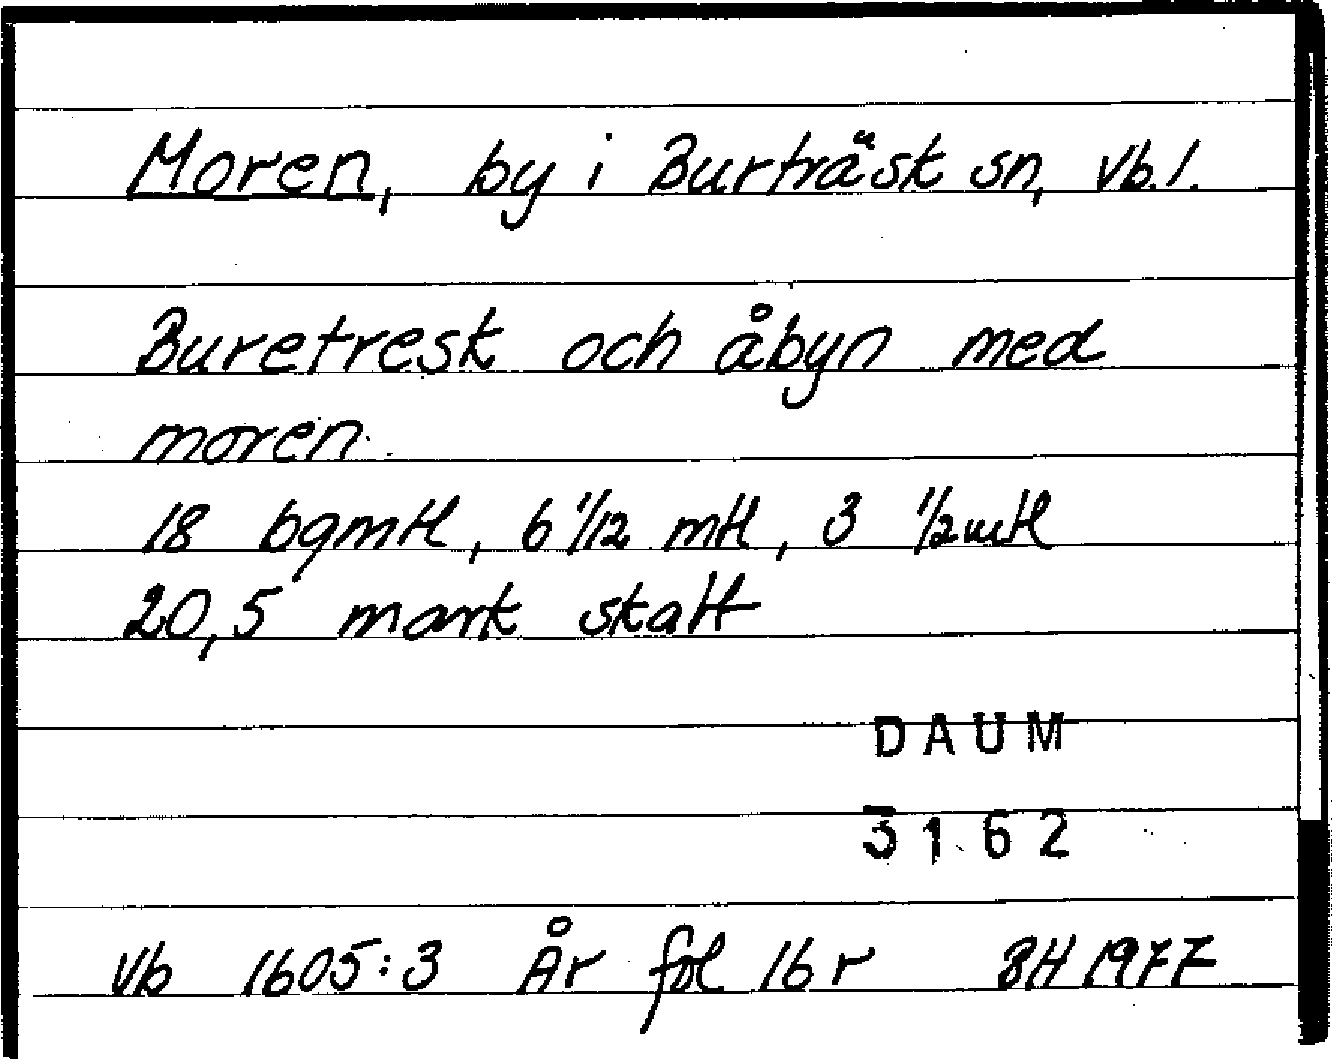 Moren, by i Burträsk sn, Vb.l.
Buretresk och åbyn med
moren.
18 bgmtl, 6 1/12 mtl, 3 1/2 mtl
20,5 mark skatt
DAUM
3162
Vb 1605:3 År fol 16 r BH 1977